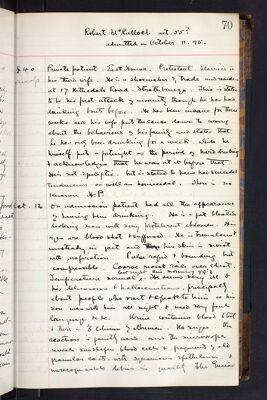 70
Robert McCulloch aet. 55?
admitted on October 11. 95.
Private patient. East House. Protestant. Married is
his third wife. He is a shoemaker to trade and resides
at 17 Hillsdale Road. Strathbungo. This is stated
to be his first attack of insanity though he has had
drinking bouts before. He has been insane for three
weeks and his wife put the cause down to worry
about the behaviour of his family and states that
he has only been drinking for a week. while he
himself put a fortnight on the period of hard drinking
& acknowledges that he was at it before that.
He is not epileptic. but is stated to have had suicidal
tendencies as well as homicidal. There is no
Oct. 12
On admission patient had all the appearance
of having been drinking. He is a fat bloated
looking man with very protuberant abdomen. His
eyes are blood shot & suffused. He is tremulous
unsteady in gait and his skin is moist
with perspiration. Pulse rapid & bounding but
compressible. Coarse moist rale over chest.
Temperature normal.
his delusions & hallucinations, principally
about people who meet & speak to him as he
language to
Urine contains blood
reaction is faintly acid. and the microscope
reveals numerous blood cells & fragments of old
granular casts. with squamous epithelium &
unrecognisable debris in quantity. The